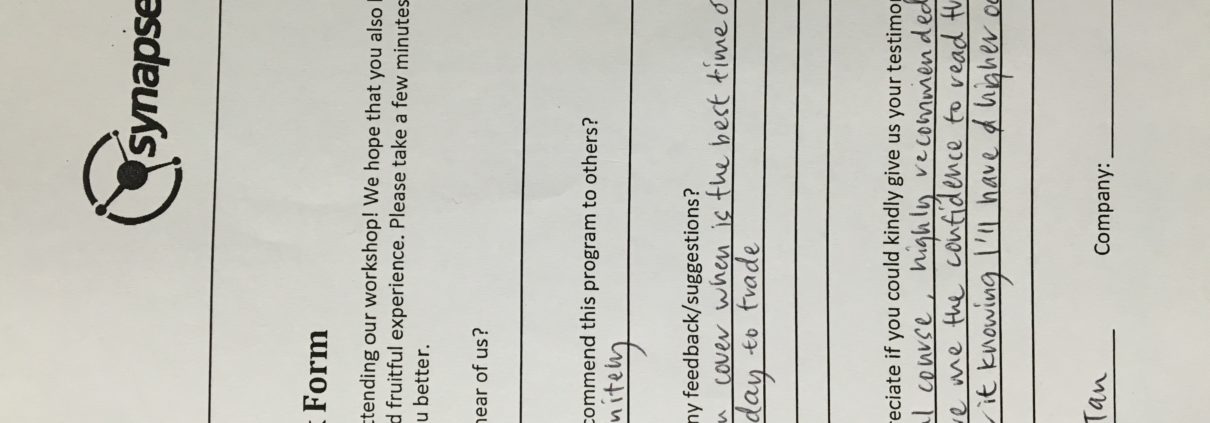 synapse
Form
ttending our workshop! We hope that you also
d fruitful experience. Please take a few minutes
u better.
hear of us?
commend this program to others?
nitely
ny feedback/suggestions?
cover when is the best time o
day to trade
reciate if you could kindly give us your testimo
l course, highly recommended
ve me the confidence to read th
it knowing I'll have a higher
Tan Company: